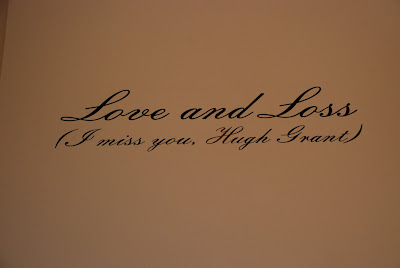 Love and Loss
(I miss you, Hugh Grant)